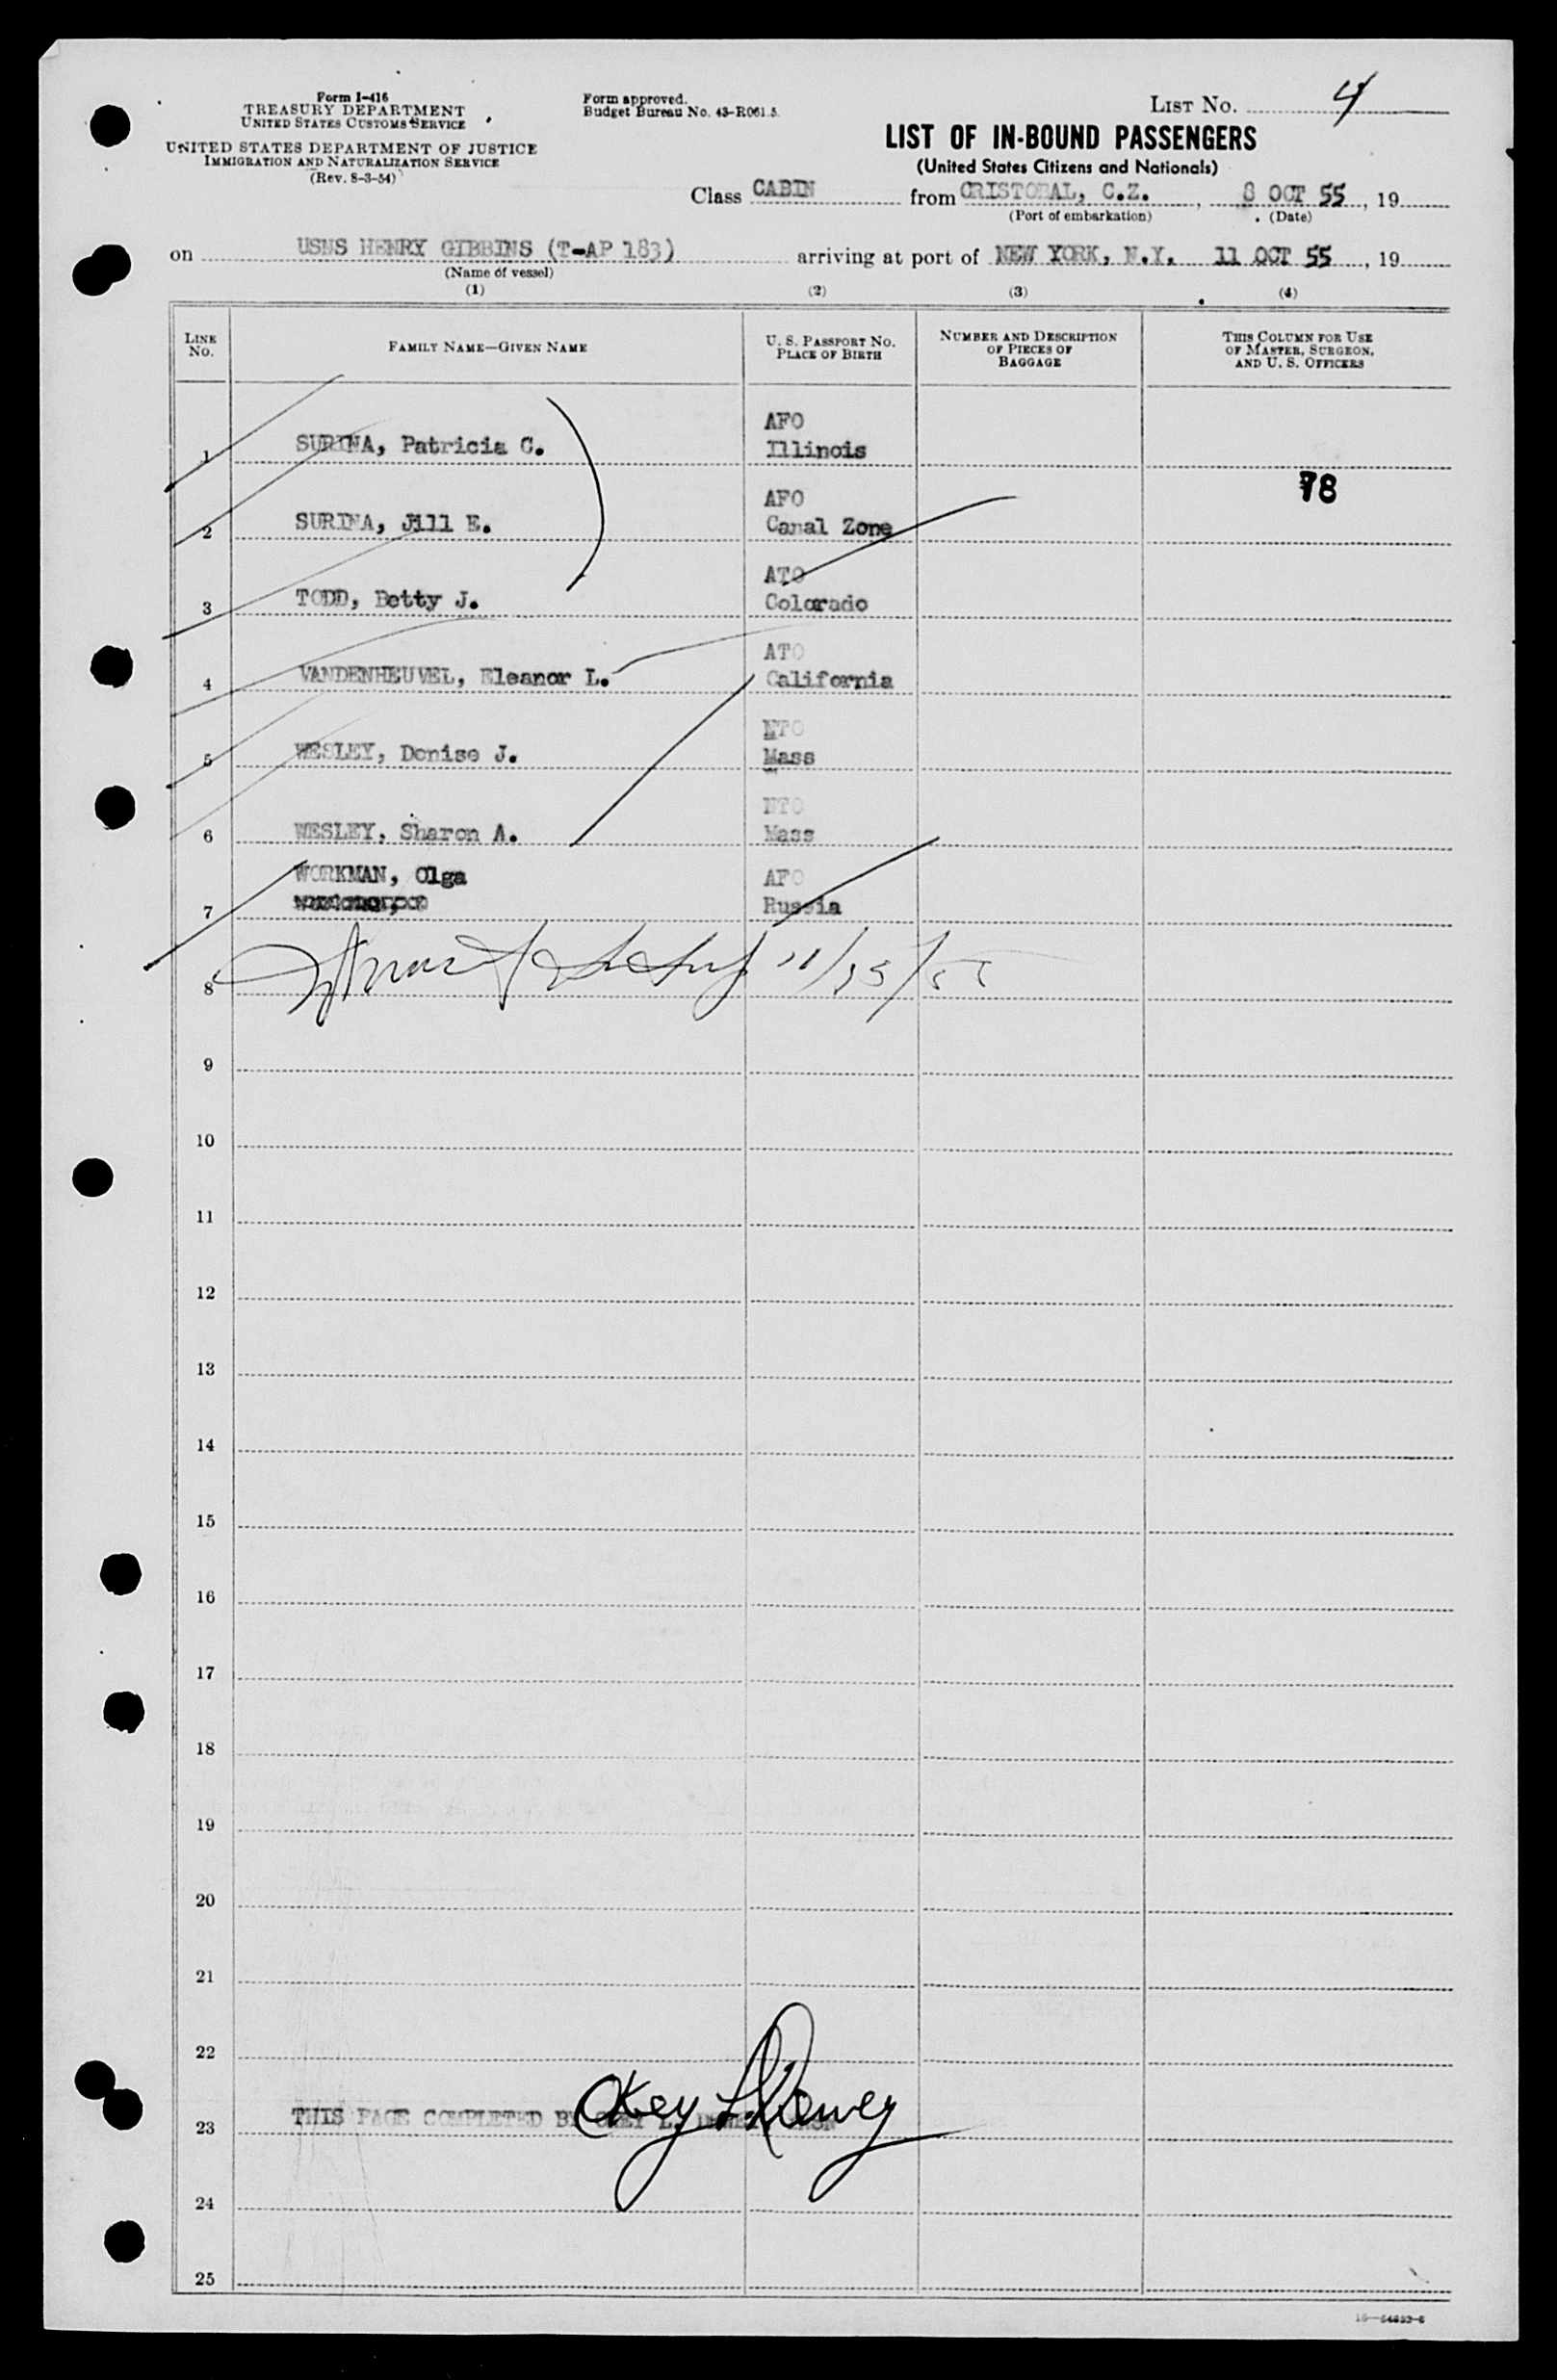 Form I-416
TREASURY DEPARTMENT
UNITED STATES CUSTOMS SERVICE
UNITED STATES DEPARTMENT OF JUSTICE
IMMIGRATION AND NATURALIZATION SERVICE
(Rev. 8-3-54)
Form approved.
Budget Bureau No. 43-R061.5.
LIST NO. 4
LIST OF IN-BOUND PASSENGERS
(United States Citizens and Nationals)
Class CABIN from CRISTOBAL, C.Z., 8 OCT 55, 19
(Port of embarkation) (Date)
on USNS HENRY GIBBINS (T-AP 183) arriving at port of NEW YORK, N.Y. 11 OCT 55, 19
(Name of vessel)
(1) (2) (3) (4)
LINE NO. FAMILY NAME—GIVEN NAME U. S. PASSPORT NO. PLACE OF BIRTH NUMBER AND DESCRIPTION OF PIECES OF BAGGAGE THIS COLUMN FOR USE OF MASTER, SURGEON, AND U. S. OFFICERS
AFO
1 SURINA, Patricia C. Illinois
78
AFO
2 SURINA, Jill E. Canal Zone
ATO
3 TODD, Betty J. Colorado
ATO
4 VANDENHEUVEL, Eleanor L. California
NTO
5 WESLEY, Denise J. Mass
NTO
6 WESLEY, Sharon A. Mass
WORKMAN, Olga AFO
7 Russia
8
9
10
11
12
13
14
15
16
17
18
19
20
21
22
Okey L Dewey
23 THIS PAGE COMPLETED BY OKEY L. DEWEY
24
25